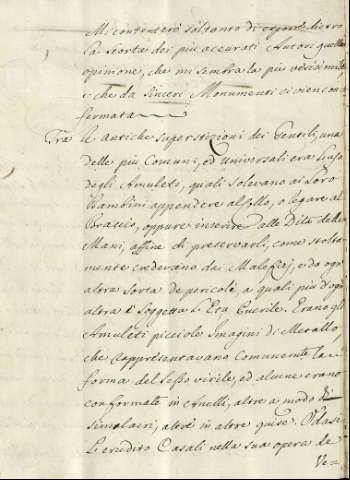 Mi contenterò soltanto di esporre dietro
la scorta dei più accurati Autori quella
opinione, che mi sembra la più verisimile
e che da sinceri Monumenti ci vien con
fermata
Tra le antiche superstizioni dei Gentili, una
delle più Comuni, ed universali era l'uso
degli Amuleti, quali solevano ai loro
Bambini appendere al Collo, o legare al
Braccio, oppure inserire alle Dita delle
Mani, affine di preservarli, come stolta
mente credevano dai Maleficj, e da ogni
altra sorta de pericoli, a quali più d'ogni
altra è soggetta l'Età Puerile. Erano gli
Amuleti picciole Imagini di Metallo,
che rappresentavano Comunemente la
forma del sesso virile, ed alcune erano
conformate in Anelli, altre a modo di
simolacri, altre in altre guise. Odasi
l'erudito Casali nella sua opera de
Ve=